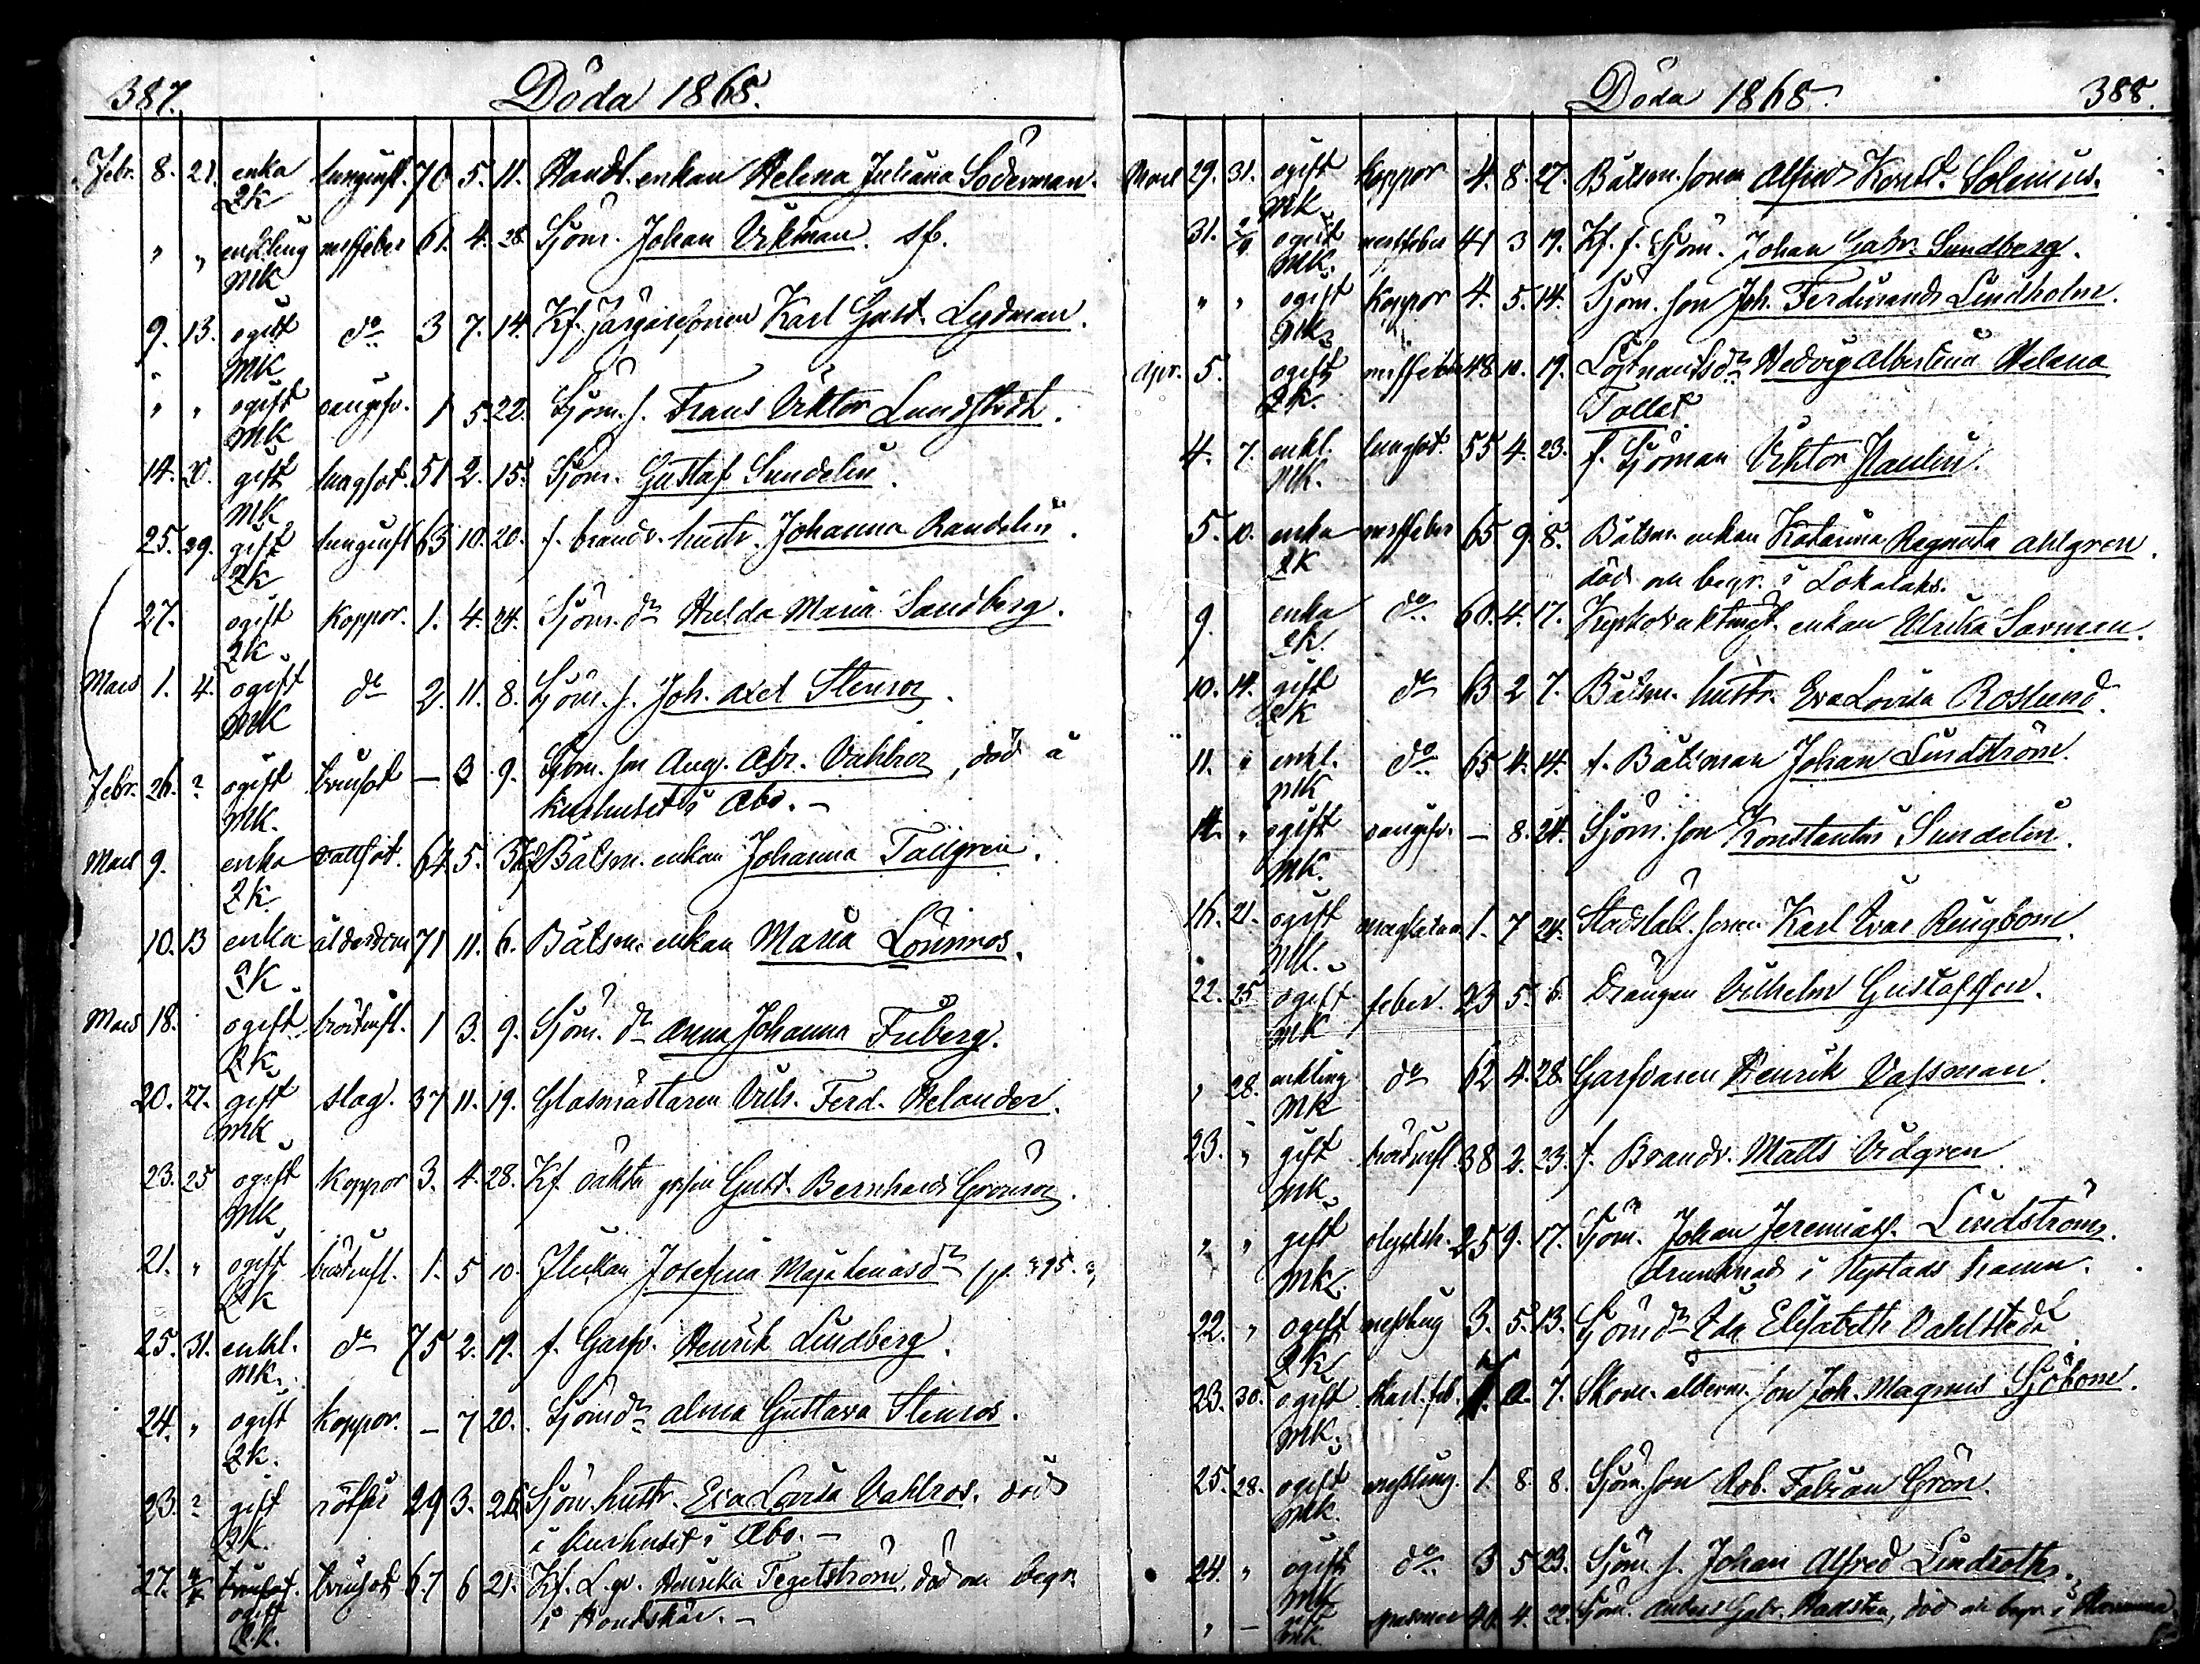 387.
Döda 1868.
Febr. 8. 21. enka lunginfl. 70 5. 11. Handl. enkan Helena Juliana Söderman.
QK
" " enkling nerffeber 61. 4. 28 Sjöm. Johan Vikman.
MK
9. 13. ogift do 3 7. 14. Kf. Karl Gust. Lydman.
MK
" " ogift 1 5. 22. Sjöm. s. Frans Viktor Lundstedt.
MK
14. 20. gift lungsot. 51 2. 15. Sjöm. Gustaf Sundelin.
MK
25. 29. gift lunginfl 63 10. 20. f. brandv. hustr. Johanna Randelin.
QK
27. ogift koppor. 1. 4. 24. Sjöm. dr Hulda Maria Sandberg.
QK
Mars 1. 4. ogift do 2. 11. 8. Sjöm. s. Joh. Axel Stenros.
MK
Febr. 26. ? ogift trinsot — 3 9. Sjöm. son Aug. Vahlros, död å
MK. kurhuset i Åbo. —
Mars 9. enka 64. 5. Båtsm. enkan Johanna Tallgren.
QK.
10. 13 enka ålderdom 71 11. 6. Båtsm. enkan Maria Lönnros.
QK
Mars 18. ogift bröstinfl. 1 3. 9. Sjöm. dr Anna Johanna Friberg.
QK
20. 27. gift slag. 37 11. 19. Glasmästaren Vilh. Ferd. Helander.
MK
23. 25 ogift koppor 3. 4. 28. Kf. oäkta gossen Gust. Bernhard Grönroos.
MK
21. " ogift bröstinfl. 1. 5 10. Flickan Josefina Maja Lenasdr
QK
25. 31. enkl. do 75 2. 19. f. Garfv. Henrik Lindberg.
MK.
24. " ogift koppor. — 7 20. Sjöm dr Alma Gustava Stenros.
QK.
23. ? gift rötfeb 29 3. Sjöm. hustr. Eva Lovisa Vahlros. död
QK. i kurhuset i Åbo. —
27. trinsot 67 6 21. Kf. Henrika Tegelström, död och begr.
ogift i Kordskär. —
QK.
Döda 1868.
388.
Mars 29. 31. ogift koppor 4. 8. 27. Båtsm. sonen Alfred Konst. Solenius.
MK
31. ogift nerffeber 41 3 19. Kf. f. Sjöm. Johan Gabr. Sundberg.
MK.
" " ogift koppor 4. 5. 14. Sjöm. son Joh. Ferdinand Lindholm.
MK
Apr. 5. ogift nerffeber 48 10. 19. Löjtnantsdr Hedvig Albertina Helena
QK. Tollet.
4. 7. enkl. lungsot. 55 4. 23. f. Sjöman Viktor Paulin.
MK.
5. 10. enka nerffeber 65 9 8. Båtsm. enkan Katarina Regneta Ahlgren.
QK död och begr. i Lokalaks.
9. enka do 60. 4. 17. enkan Ulrika Sarmen.
QK.
10. 14. gift do 63 2 7. Båtsm. hustr. Eva Lovisa Roslund.
QK
11. " enkl. do 65 4. 14. f. Båtsman Johan Lindström.
MK
" ogift — 8. 24. Sjöm. son Konstantin Sundelin.
MK.
16. 21. ogift 1. 7 24. Karl Ivar Ringbom.
MK.
22. 25 ogift feber. 23 5. 6. Drängen Vilhelm Gustafsson.
MK
" 28. enkling do 62 4. 28. Garfvaren Henrik Vassman.
MK
23. " gift bröstinfl 38 2. 23. f. Brandv. Matts Vidgren
MK
" " gift olyckh. 25 9. 17. Sjöm. Johan Jeremiass. Lindström.
MK. drunknad i Nystads hamn.
22. " ogift messling 3. 5. 13. Sjöm dr Ida Elisabeth Vahlstedt
QK
23. 30. ogift skarl. feb. 7. Skom. ålderm. son Joh. Magnus Sjöbom.
MK.
25. 28. ogift messling. 1. 8 8. Sjöm. son Rob. Fabian Grön.
MK.
24. " ogift do 3 5 23. Sjöm. s. Johan Alfred Lindroth.
MK
" — gift 40. 4. 22. Sjöm. Anders Gabr. död och begr. i
MK